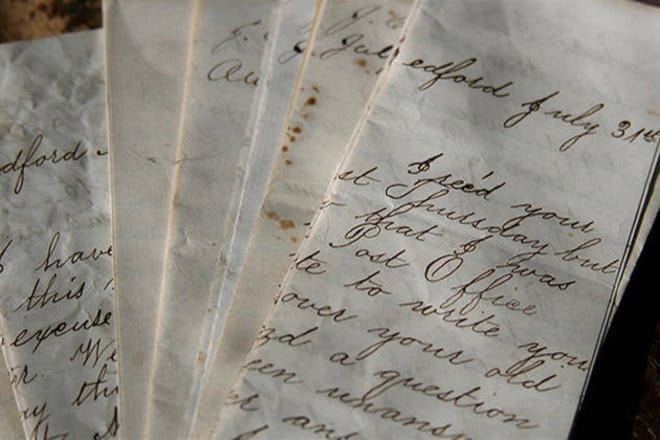 dford
have
this
excuse
We
J.
Au
J.
Jul
edford July 31st
I rec'd your
st Thursday but
that I was
Post Office
te to write you
over your old
d a question
een unansw